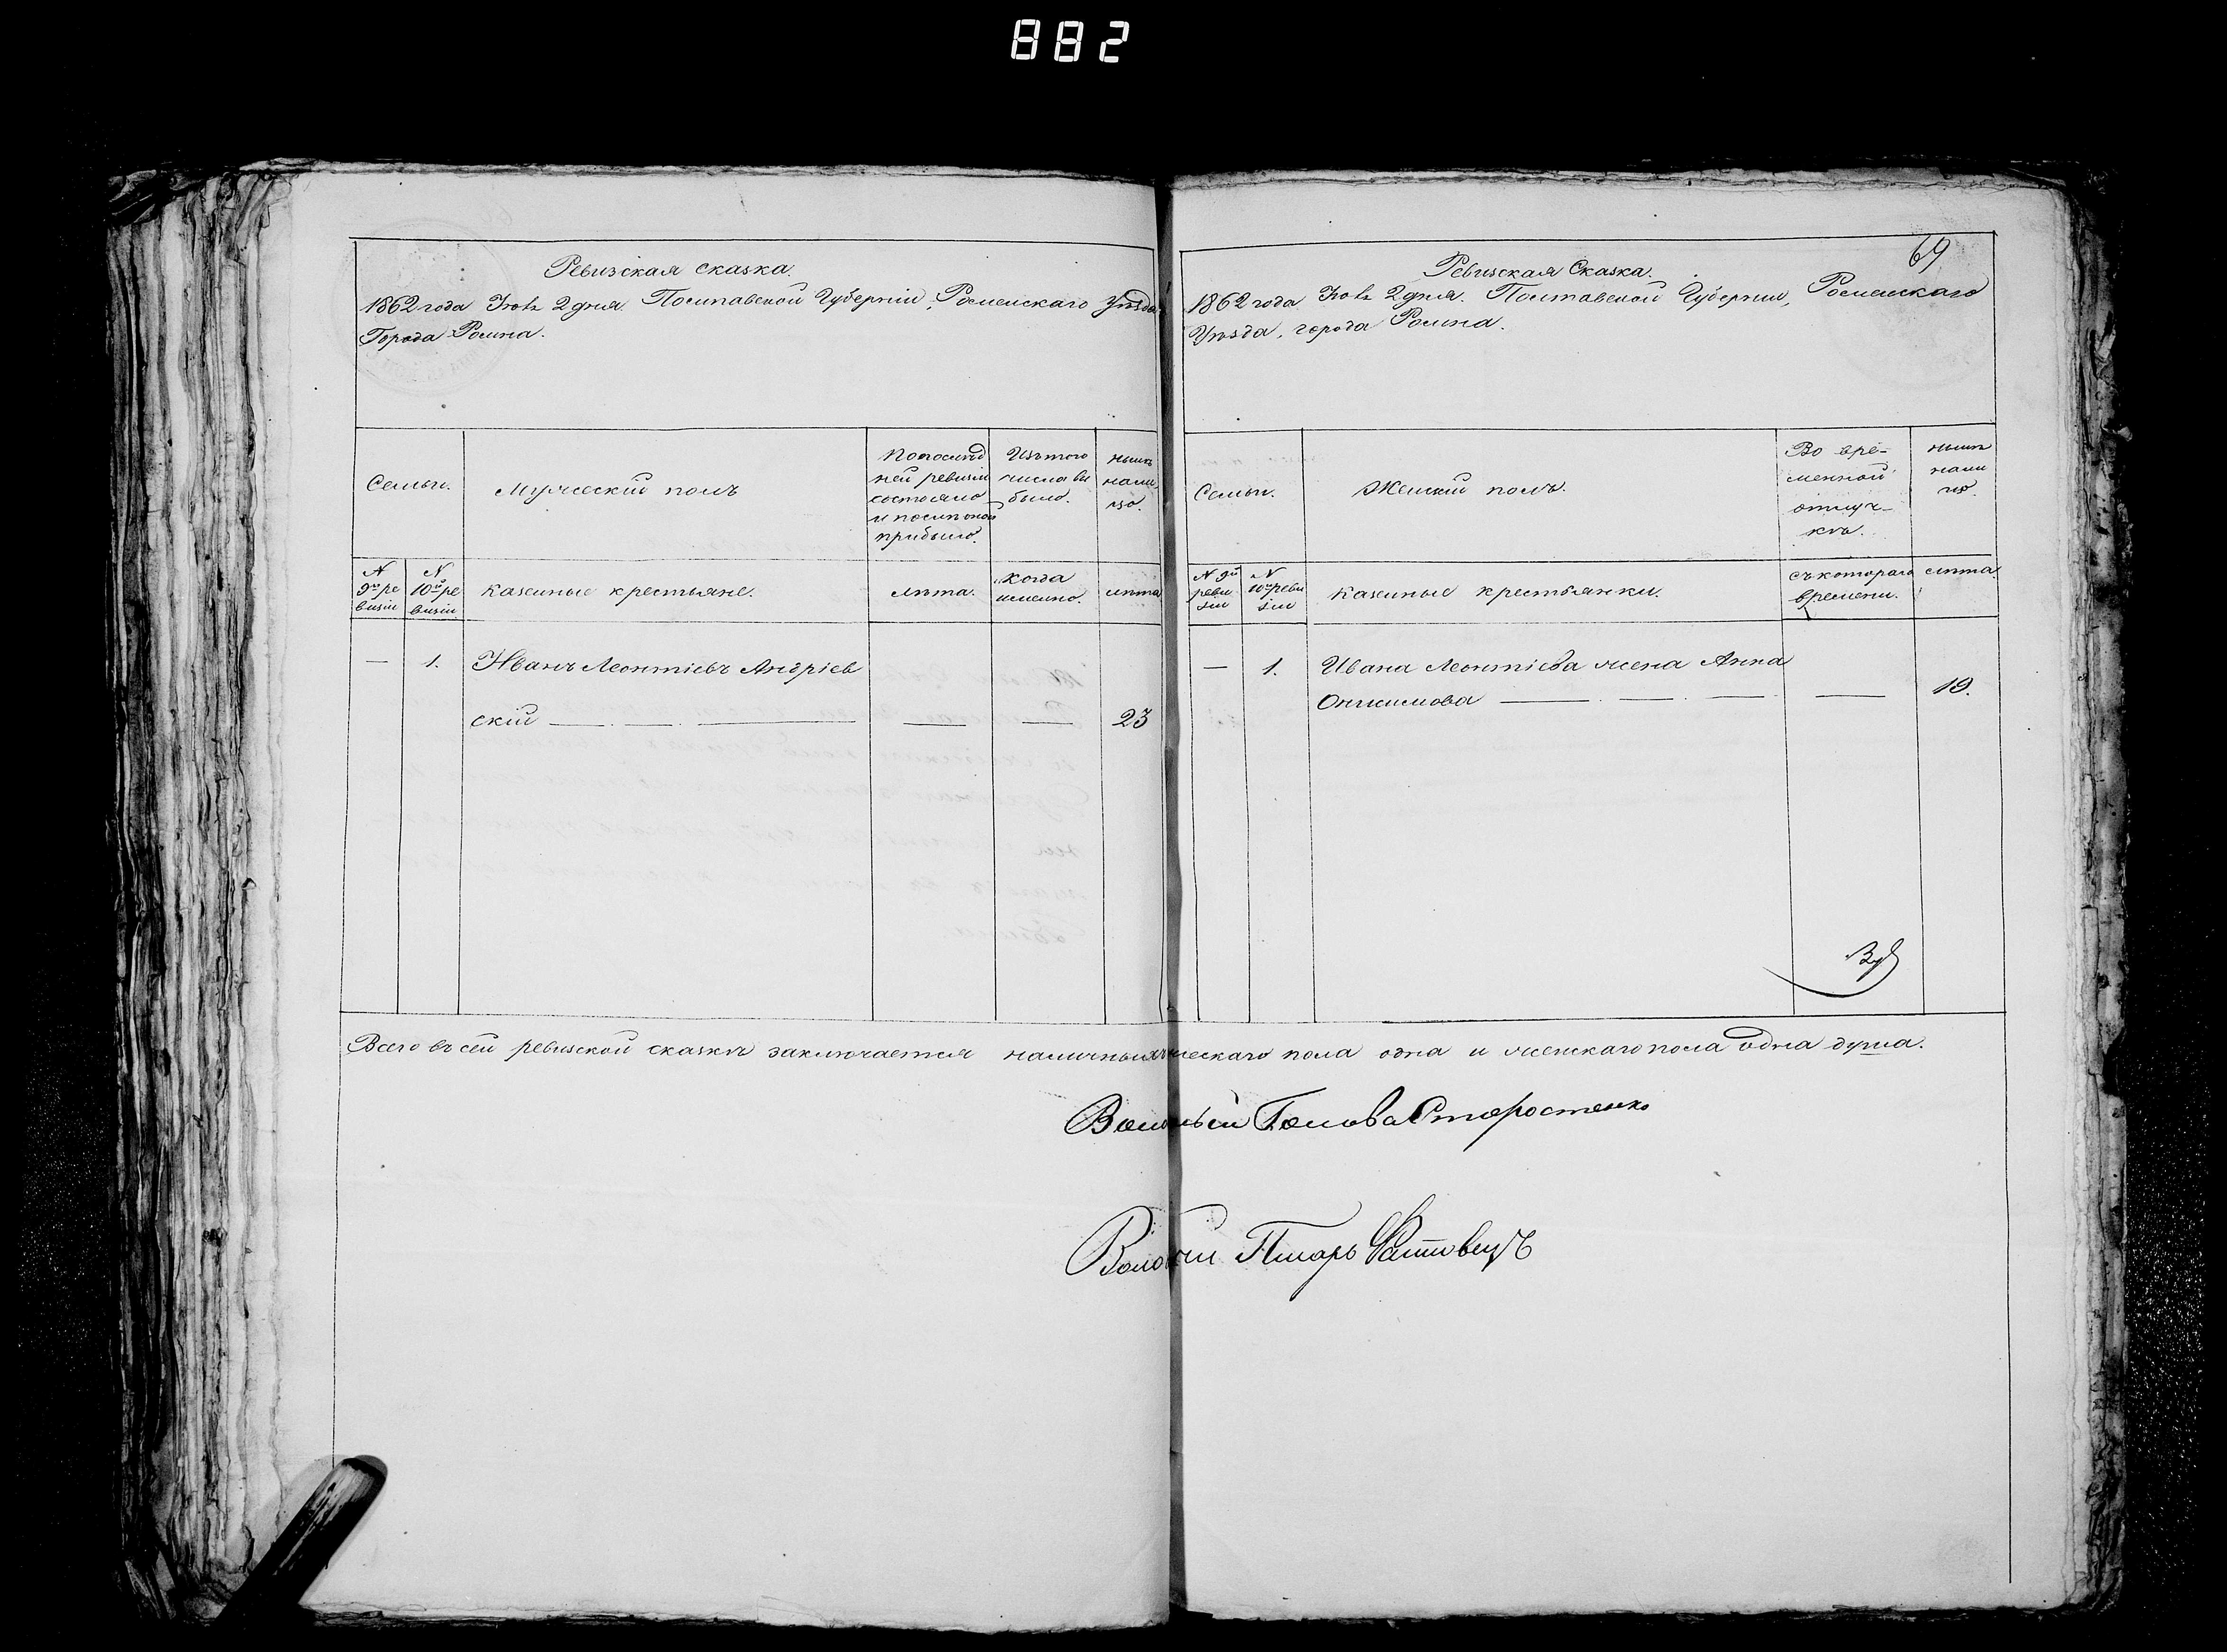 882
Ревизская сказка.
1862 года Іюля 2 дня. Полтавской Губерніи, Роменскаго Уѣзда
Города Ромна.
Семьи.
Мужескій полъ
По послѣд
ней ревизіи
состояло
и после оной
прибыло.
Изъ того
числа вы
было.
нынѣ
нали
цо.
N
9й ре
визіи
N
10й ре
визіи
Казенные крестьяне.
лѣта.
когда
именно.
лѣта
—
1.
Иванъ Леонтіевъ Андріев
скій
23
69
Ревизская Сказка.
1862 года Іюля 2 дня. Полтавской Губерніи, Роменскаго
Уѣзда, города Ромна.
Семьи.
Женскій полъ.
Во вре-
менной
отлуч-
кѣ.
нынѣ
нали
цо.
N 9й
реви
зіи
N
10й реви
зіи
Казенные крестьянки.
съ котораго
времени.
лѣта.
—
1.
Ивана Леонтіева жена Анна
Онисимова
19.
Всего въ сей ревизской сказкѣ заключается наличныхъ мужескаго пола одна и женскаго пола одна душа.
Волосный Голова Старостенко
Волосный Писарь